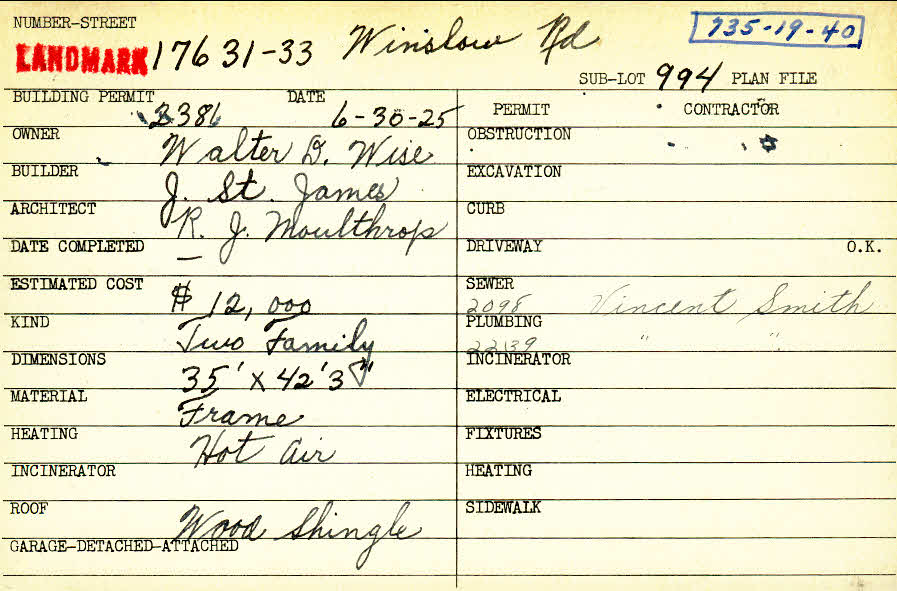 NUMBER-STREET
LANDMARK 17631-33 Winslow Rd
735-19-40
SUB-LOT 994 PLAN FILE
BUILDING PERMIT 2386 DATE 6-30-25
PERMIT CONTRACTOR
OWNER Walter D. Wise
OBSTRUCTION
BUILDER J. St. James
EXCAVATION
ARCHITECT R. J. Moulthrop
CURB
DATE COMPLETED —
DRIVEWAY O.K.
ESTIMATED COST $ 12,000
SEWER 2098 Vincent Smith
KIND Two Family
PLUMBING 22139 " "
DIMENSIONS 35' X 42'3"
INCINERATOR
MATERIAL Frame
ELECTRICAL
HEATING Hot Air
FIXTURES
INCINERATOR
HEATING
ROOF Wood Shingle
SIDEWALK
GARAGE-DETACHED-ATTACHED